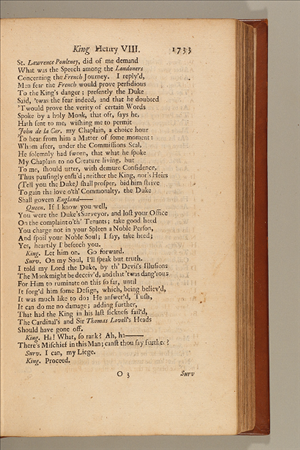 King Henry VIII. 1733
St. Lawrence Poultney, did of me demand
What was the Speech among the Londoners
Concerning the French Journey. I reply'd,
Men fear the French would prove perfidious
To the King's danger: presently the Duke
Said, 'twas the fear indeed, and that he doubted
'Twould prove the verity of certain Words
Spoke by a holy Monk, that oft, says he.
Hath sent to me, wishing me to permit
John de la Car, my Chaplain, a choice hour
To hear from him a Matter of some moment:
Whom after, under the Commissions Seal.
He solemnly had sworn, that what he spoke
My Chaplain to no Creature living, but
To me, should utter, with demure Confidence,
Thus pausingly ensu'd; neither the King, nor's Heirs
(Tell you the Duke) shall prosper, bid him strive
To gain the love o'th' Commonalty, the Duke
Shall govern England——
Queen. If I know you well,
You were the Duke's Surveyor, and lost your Office
On the complaint o'th' Tenants; take good heed
You charge not in your Spleen a Noble Person,
And spoil your Noble Soul; I say, take heed;
Yes, heartily I beseech you.
King. Let him on. Go forward.
Surv. On my Soul, I'll speak but truth.
I told my Lord the Duke, by th' Devil's Illusions
The Monk might be deceiv'd, and that 'twas dang'rous
For Him to ruminate on this so far, until
It forg'd him some Design, which, being believ'd,
It was much like to do: He answer'd, Tush,
It can do me no damage; adding further,
That had the King in his last sickness fail'd,
The Cardinal's and Sir Thomas Lovell's Heads
Should have gone off.
King. Ha! What, so rank? Ah, ha——
There's Mischief in this Man; canst thou say further?
Surv. I can, my Liege.
King. Proceed.
O 3 Surv